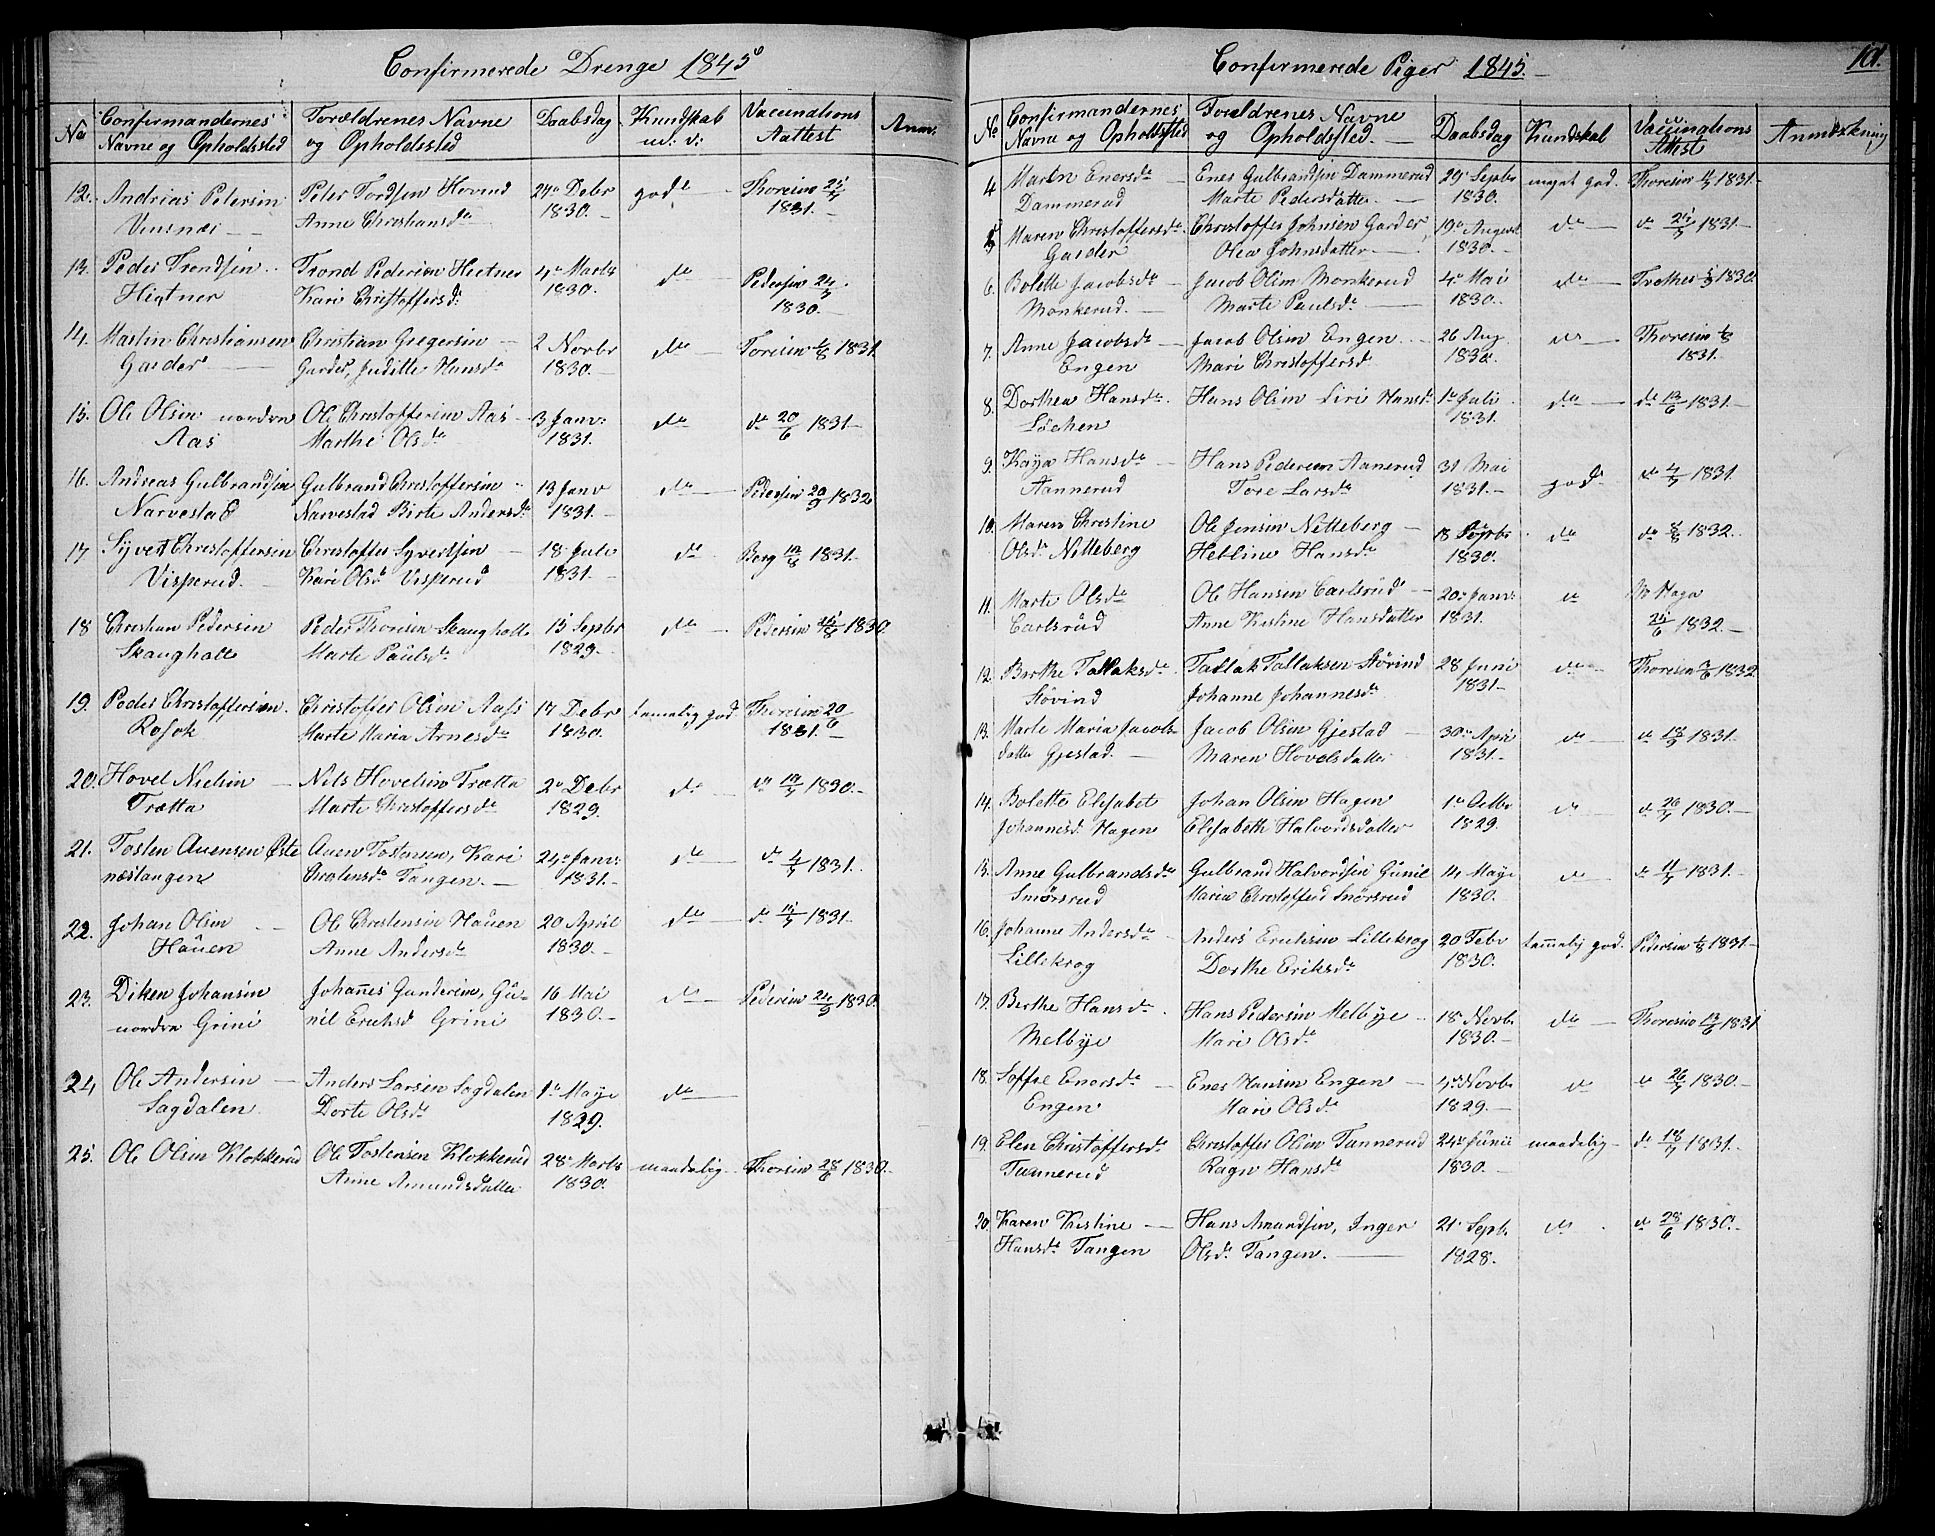 Confirmerede Drenge 1845
No
Confirmandernes
Navne og Opholdssted
Forældrenes Navne
og Opholdssted
Daabsdag
Kundskab
Vaccinations
Aattest
Anm:
12. Andrias Petersin
Peter Tordsen Hovind
Anne Christiansda
27de Debr
1830.
god
Thoresin 21/7
1831.
13. Peder Trondsin
Higtner
Trond Pedersen Higtner
Kari Christoffersd:
4de Marts
1830.
do
Pedersin 24/7
1830.
14. Martin Christiansen
Garder
Christian Gregersin
Garder, Juditte Hansda
2 Novbr
1830.
do
Toresin 1/8 1831
15. Ole Olsin nordre
Aas
Ole Christoffersin Aas
Marthe Olsda
3 Janv:
1831.
do
do 20/6 1831
16. Andreas Gulbrandsin
Narvestad
Gulbrand Christoffersin
Narvestad Birte Andersda
13 Janv
1831.
do
Pedersin 20/9 1832
17 Syvert Christoffersin
Visperud.
Christoffer Syvertsin
Kari Olsda Visperud
18 Juli
1831.
do
Berg 10/8 1831.
18 Christian Pedersin
Skanghalle
Peder Thorisin Skanghalle
Marte Paulsda
15 Septbr
1829.
do
Pedersin 24/8 1830.
19. Peder Christoffersen.
Rosok
Christoffer Olsin Aass
Marte Maria Arnesda
17 Debr
1830.
tammelig god
Thoresin 20/6
1831.
20. Hovel Nielsin
Trætta
Nils Hovelsin Trætta
Marte Christoffersda
2de Debr
1829.
do
do 10/7 1830.
21. Tosten Auensen Øste
næstangen
Auen Tostensen, Kari
Christensda Tangen.
24de Janv:
1831.
do
do 4/7 1831.
22. Johan Olsin
Hauen
Ole Christensin Hauen
Anne Andersda
20 April
1830.
do
do 11/7 1831.
23. Diken Johansin
nordre Grini
Johannes Gundersin, Gu-
nil Eriksd Grini
16 Mai
1830.
do
Pedersin 24/9 1830.
24 Ole Andersin
Sagdalen
Anders Larsen Sagdalen
Dorte Olsda
1ste Maye
1829.
do
25. Ole Olsin Klokkerud
Ole Tostensen Klokkerud
Anne Amundsdatter
28de Marts
1830.
maadelig
Thorsin 28/6 1830.
Confirmerede Piger 1845.
101.
No
Confirmandernes
Navne og Opholdssted
Foreldrenes Navne
og Opholdssted.
Daabsdag
Kundskab
Vaccinations
Attest
Anmærkning
4 Maren Enersda
Dammerud
Ener Gulbrandsin Dammerud
Marte Pedersdatter
29de Septbr
1830.
meget god.
Thoresin 4/7 1831.
5 Maren Christoffersda
Garder
Christoffer Johnsen Garder
Olea Johnsdatter
19de August
1830.
do
do 21/7 1831.
6. Bolette Jacobsda
Monkerud.
Jacob Olsin Monkerud
Marte Paulsda
4de Mai
1830.
do
Frethes 5/9 1830.
7. Anne Jacobsda
Engen
Jacob Olsin Engen
Mari Christoffersd
26 Aug
1830.
do
Thoresin 1/8
1831.
8. Dorthea Hansda
Løchen
Hans Olsin Siri Hansda
1ste Juli
1831.
do
do 13/6 1831.
9. Kaya Hansda
Aannerud
Hans Pedersen Aanerud
Tore Larsda
31 Mai
1831.
god.
do 4/7 1831.
10. Maren Christine
Olsda Netteberg
Ole Jensin Netteberg
Helline Hansda
18 Septbr
1830.
do
do 8/8 1832.
11. Marte Olsda
Carlsrud
Ole Hansen Carlsrud
Anne Kistine Hansdatter
20de Janv:
1831.
do
Haga
21/6 1832.
12. Berthe Tallaksda
Støvind
Tallak Tallaksen Støvind
Johanne Johannesda
28 Juni
1831
do
Thoresin 3/6 1832
13. Marte Maria Jacobs
datter Gjestad
Jacob Olsin Gjestad
Maren Hovelsdatter
30te April
1831.
do
do 18/9 1831.
14. Bolette Elisabet
Johannesd. Hagen
Johan Olsin Hagen
Elisabeth Halvordsdatter
1ste Octbr
1829.
do
do 26/7 1830.
15. Anne Gulbrandsda
Smørsrud
Gulbrand Halvordsin Gunil
Maria Christoffersd Smørsrud
14 Maye
1830.
do
do 11/7 1831.
16. Johanne Andersda
Lillekrog
Anders Eriksin Lillekrog
Dorthe Eriksda
20 Febr
1830.
tammelig god.
Pedersin 1/8 1831.
17. Berthe Hansda
Melbye
Hans Pedersin Melbye
Mari Olsda
18de Novbr
1830.
do
Thoresin 13/6 1831
18. Soffie Enersda
Engen
Ener Hansin Engen
Mari Olsda
4de Novbr
1829.
do
do 26/7 1830.
19. Elen Christoffersda
Tannerud
Christoffer Olsin Tannerud
Ragn Hansda
24de Junii
1830.
maadelig
do 18/7 1831.
20. Karen Kistine
Hansda Tangen
Hans Amundsin, Inger
Olsda Tangen.
21. Septbr
1828.
do
do 28/6 1830.